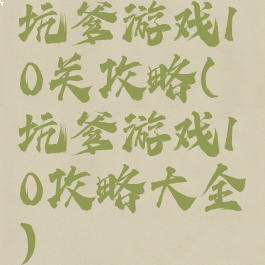 坑爹游戏1
0关攻略(
坑爹游戏1
0攻略大全
)